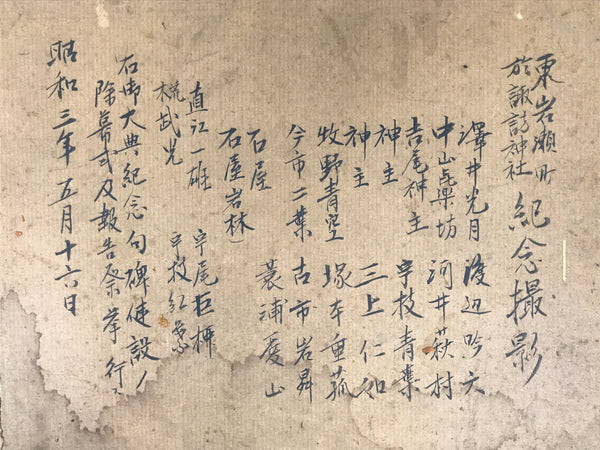 東岩瀬町
於諏訪神社 紀念撮影
澤井光月 渡辺吟六
中山長楽坊 河井萩村
吉尾神主 宇枝青葉
神主 三上仁和
神主 塚本重孤
牧野青空 古市岩昇
今市二葉 蓑浦慶山
石屋
石屋岩林
直江一雄 宇尾拒枰
桄武光 宇枝紅葉
右御大典紀念句碑建設ノ
除幕式及報告祭挙行
昭和三年五月十六日